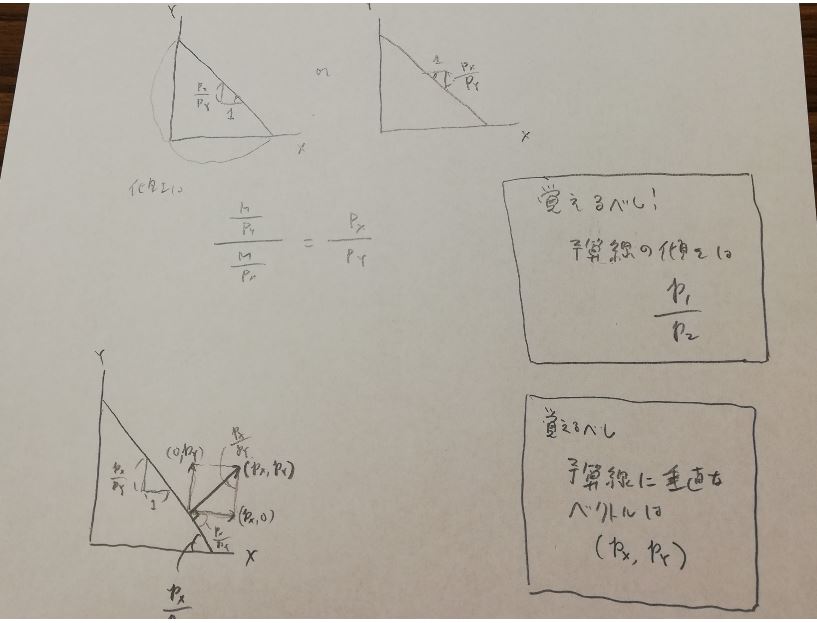 Y
Y
Px/PY
1
or
1
Px/PY
X
X
傾きは
M/PY / M/Px = Px/PY
覚えるべし!
予算線の傾きは
p1/p2
Y
(0, pY)
px/pY
(px, pY)
px/pY
1
(px, 0)
px/pY
X
px
覚えるべし
予算線に垂直な
ベクトルは
(px, pY)